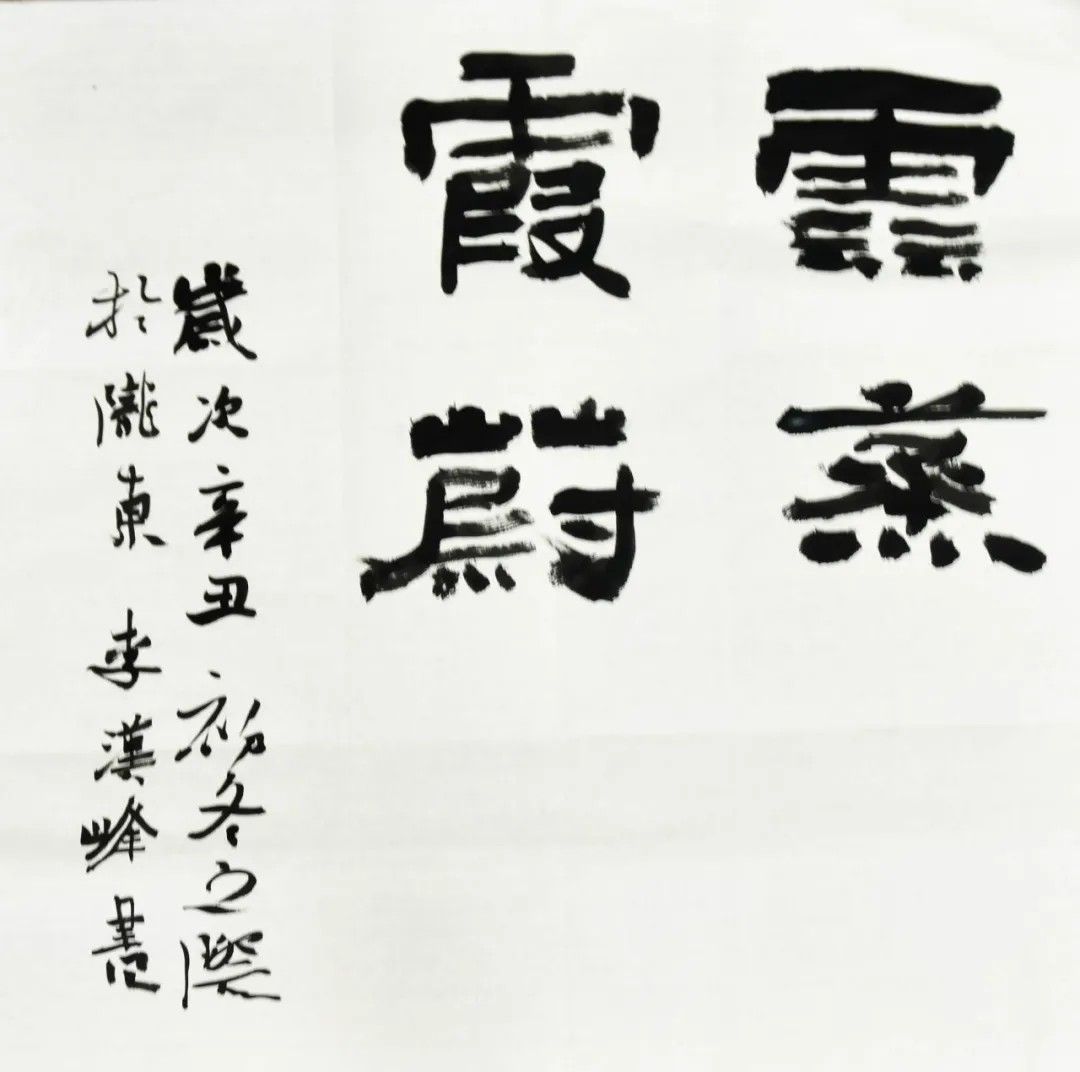 雲蒸
霞蔚
歲次辛丑初冬之際
於隴東李漢峰書